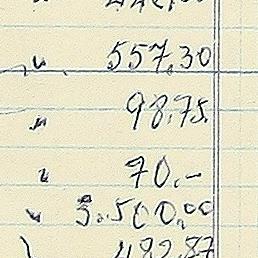 " 557,30
" 98.75
" 70.-
" 3.500,00
482,87